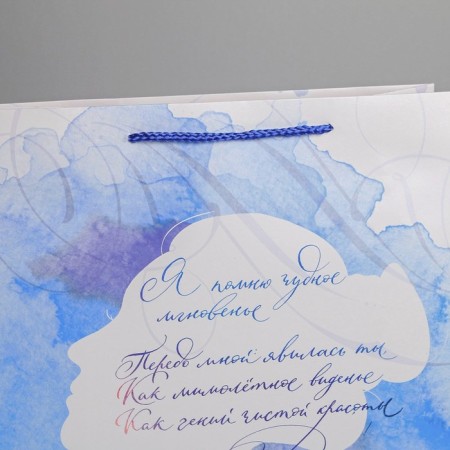 Я помню чудное
мгновенье
Передо мной явилась ты
Как мимолётное виденье
Как гений чистой красоты